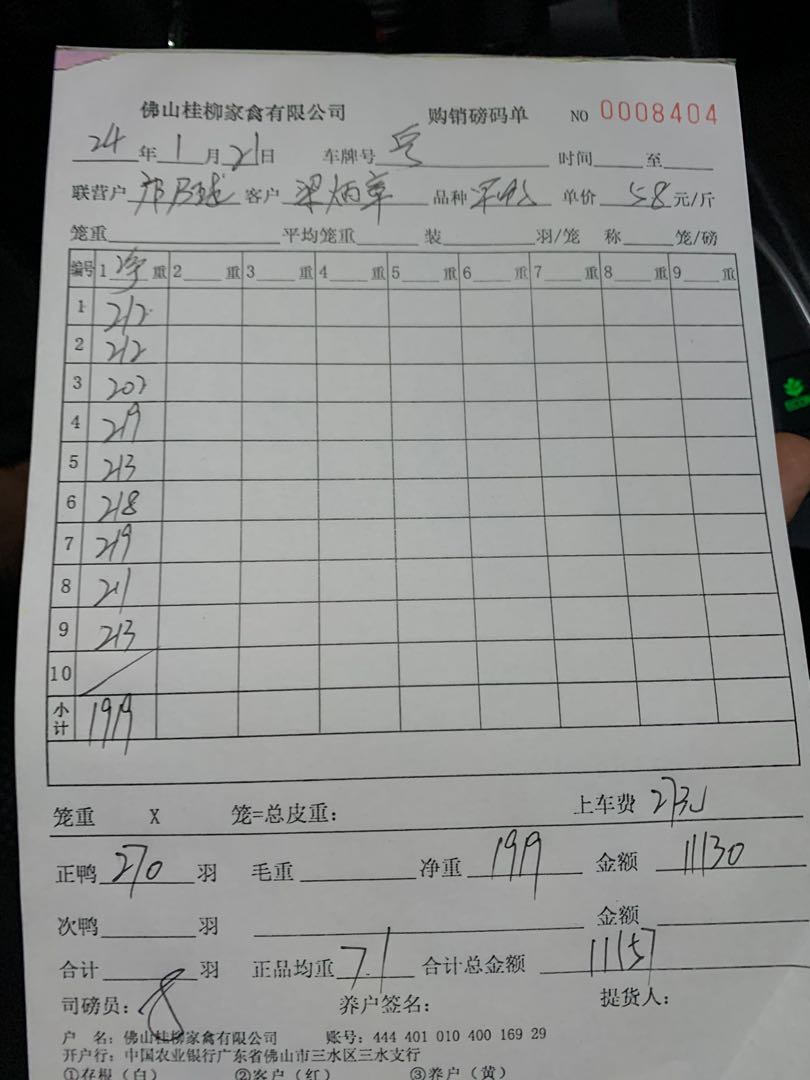 佛山桂柳家禽有限公司 购销磅码单 NO 0008404
24 年 1 月 21 日 车牌号 时间 至
联营户 客户 梁炳章 品种 单价 58 元/斤
笼重 平均笼重 装 羽/笼 称 笼/磅
编号 1 净 重 2 重 3 重 4 重 5 重 6 重 7 重 8 重 9 重
1 212
2 212
3 202
4 219
5 213
6 218
7 219
8 211
9 213
10
小计 1919
笼重 X 笼=总皮重: 上车费
正鸭 270 羽 毛重 净重 1919 金额 11130
次鸭 羽 金额
合计 羽 正品均重 7.1 合计总金额 11157
司磅员: 养户签名: 提货人:
户 名: 佛山桂柳家禽有限公司 账号: 444 401 010 400 169 29
开户行: 中国农业银行广东省佛山市三水区三水支行
①存根(白) ②客户(红) ③养户(黄)